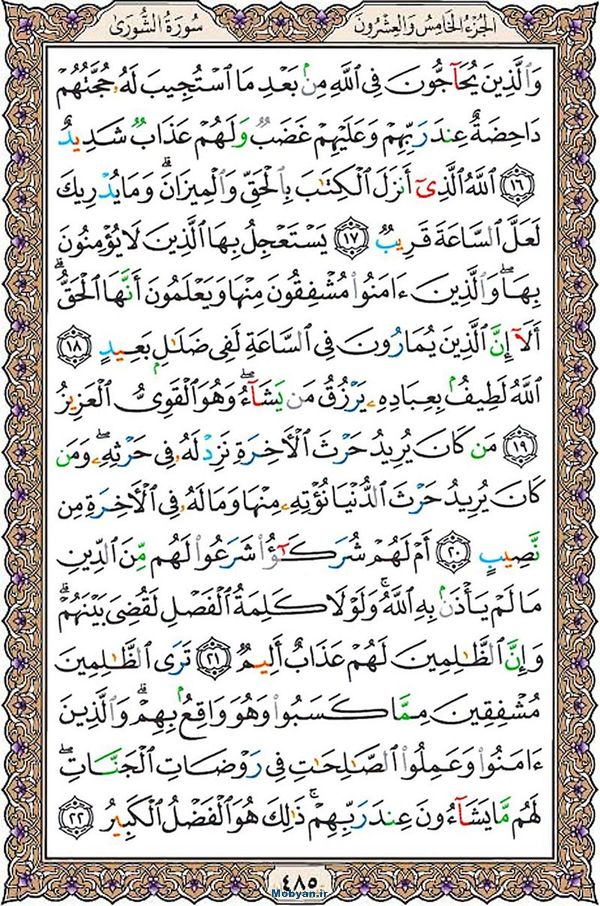 الجزء الخامس والعشرون
سورة الشورى
وَٱلَّذِينَ يُحَآجُّونَ فِى ٱللَّهِ مِنۢ بَعْدِ مَا ٱسْتُجِيبَ لَهُۥ حُجَّتُهُمْ
دَاحِضَةٌ عِندَ رَبِّهِمْ وَعَلَيْهِمْ غَضَبٌ وَلَهُمْ عَذَابٌ شَدِيدٌ
﴿١٦﴾ ٱللَّهُ ٱلَّذِىٓ أَنزَلَ ٱلْكِتَٰبَ بِٱلْحَقِّ وَٱلْمِيزَانَ ۗ وَمَا يُدْرِيكَ
لَعَلَّ ٱلسَّاعَةَ قَرِيبٌ ﴿١٧﴾ يَسْتَعْجِلُ بِهَا ٱلَّذِينَ لَا يُؤْمِنُونَ
بِهَا ۖ وَٱلَّذِينَ ءَامَنُوا۟ مُشْفِقُونَ مِنْهَا وَيَعْلَمُونَ أَنَّهَا ٱلْحَقُّ ۗ
أَلَآ إِنَّ ٱلَّذِينَ يُمَارُونَ فِى ٱلسَّاعَةِ لَفِى ضَلَٰلٍۭ بَعِيدٍ ﴿١٨﴾
ٱللَّهُ لَطِيفٌۢ بِعِبَادِهِۦ يَرْزُقُ مَن يَشَآءُ ۖ وَهُوَ ٱلْقَوِىُّ ٱلْعَزِيزُ
﴿١٩﴾ مَن كَانَ يُرِيدُ حَرْثَ ٱلْأَخِرَةِ نَزِدْ لَهُۥ فِى حَرْثِهِۦ ۖ وَمَن
كَانَ يُرِيدُ حَرْثَ ٱلدُّنْيَا نُؤْتِهِۦ مِنْهَا وَمَا لَهُۥ فِى ٱلْأَخِرَةِ مِن
نَّصِيبٍ ﴿٢٠﴾ أَمْ لَهُمْ شُرَكَٰٓؤُا۟ شَرَعُوا۟ لَهُم مِّنَ ٱلدِّينِ
مَا لَمْ يَأْذَنۢ بِهِ ٱللَّهُ ۚ وَلَوْلَا كَلِمَةُ ٱلْفَصْلِ لَقُضِىَ بَيْنَهُمْ ۗ
وَإِنَّ ٱلظَّٰلِمِينَ لَهُمْ عَذَابٌ أَلِيمٌ ﴿٢١﴾ تَرَى ٱلظَّٰلِمِينَ
مُشْفِقِينَ مِمَّا كَسَبُوا۟ وَهُوَ وَاقِعٌۢ بِهِمْ ۗ وَٱلَّذِينَ
ءَامَنُوا۟ وَعَمِلُوا۟ ٱلصَّٰلِحَٰتِ فِى رَوْضَاتِ ٱلْجَنَّاتِ ۖ
لَهُم مَّا يَشَآءُونَ عِندَ رَبِّهِمْ ۚ ذَٰلِكَ هُوَ ٱلْفَضْلُ ٱلْكَبِيرُ ﴿٢٢﴾
٤٨٥
Mobyan.ir